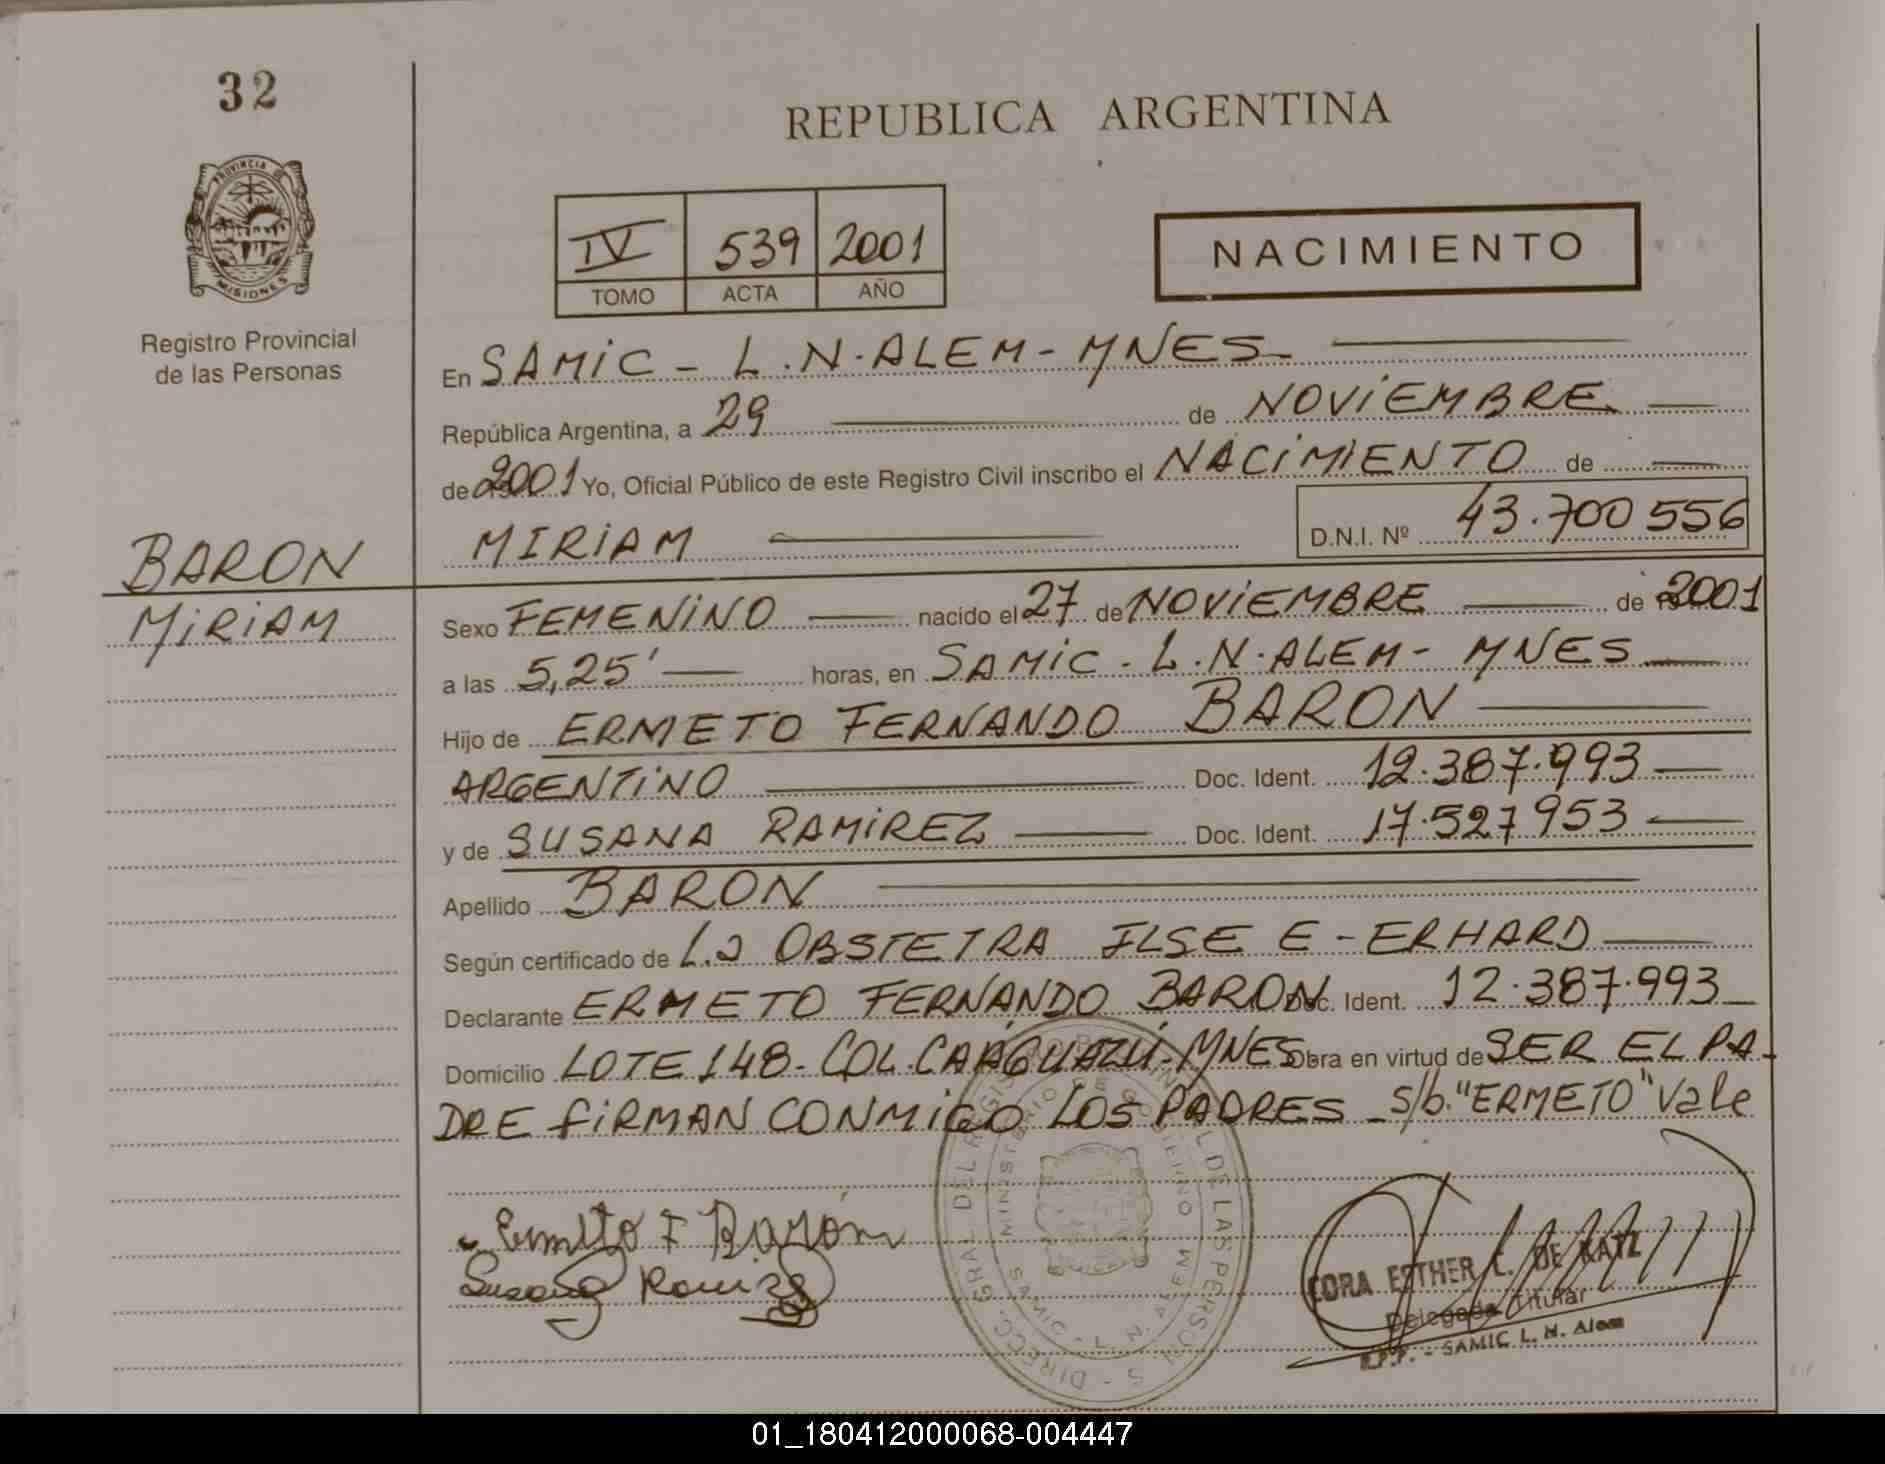 32
REPUBLICA ARGENTINA
PROVINCIA DE
MISIONES
Registro Provincial
de las Personas
IV 539 2001
TOMO ACTA AÑO
NACIMIENTO
En SAMIC - L.N.ALEM - MNES
República Argentina, a 29 de NOVIEMBRE
de 2001 Yo, Oficial Público de este Registro Civil inscribo el NACIMIENTO de
MIRIAM D.N.I. Nº 43.700 556
BARON
MIRIAM
Sexo FEMENINO nacido el 27 de NOVIEMBRE de 2001
a las 5,25' horas, en SAMIC - L.N.ALEM - MNES
Hijo de ERMETO FERNANDO BARON
ARGENTINO Doc. Ident. 12.387.993
y de SUSANA RAMIREZ Doc. Ident. 17.527 953
Apellido BARON
Según certificado de La OBSTETRA ILSE E - ERHARD
Declarante ERMETO FERNANDO BARON Doc. Ident. 12.387.993
Domicilio LOTE 148 - COL. CAAGUAZU - MNES Obra en virtud de SER EL PA-
DRE FIRMAN CONMIGO LOS PADRES - s/b. "ERMETO" Vale
Ermeto F Barón
Susana Ramirez
CORA ESTHER C. DE KATZ
Delegada Titular
R.P.P. - SAMIC L. N. Alem
01_180412000068-004447